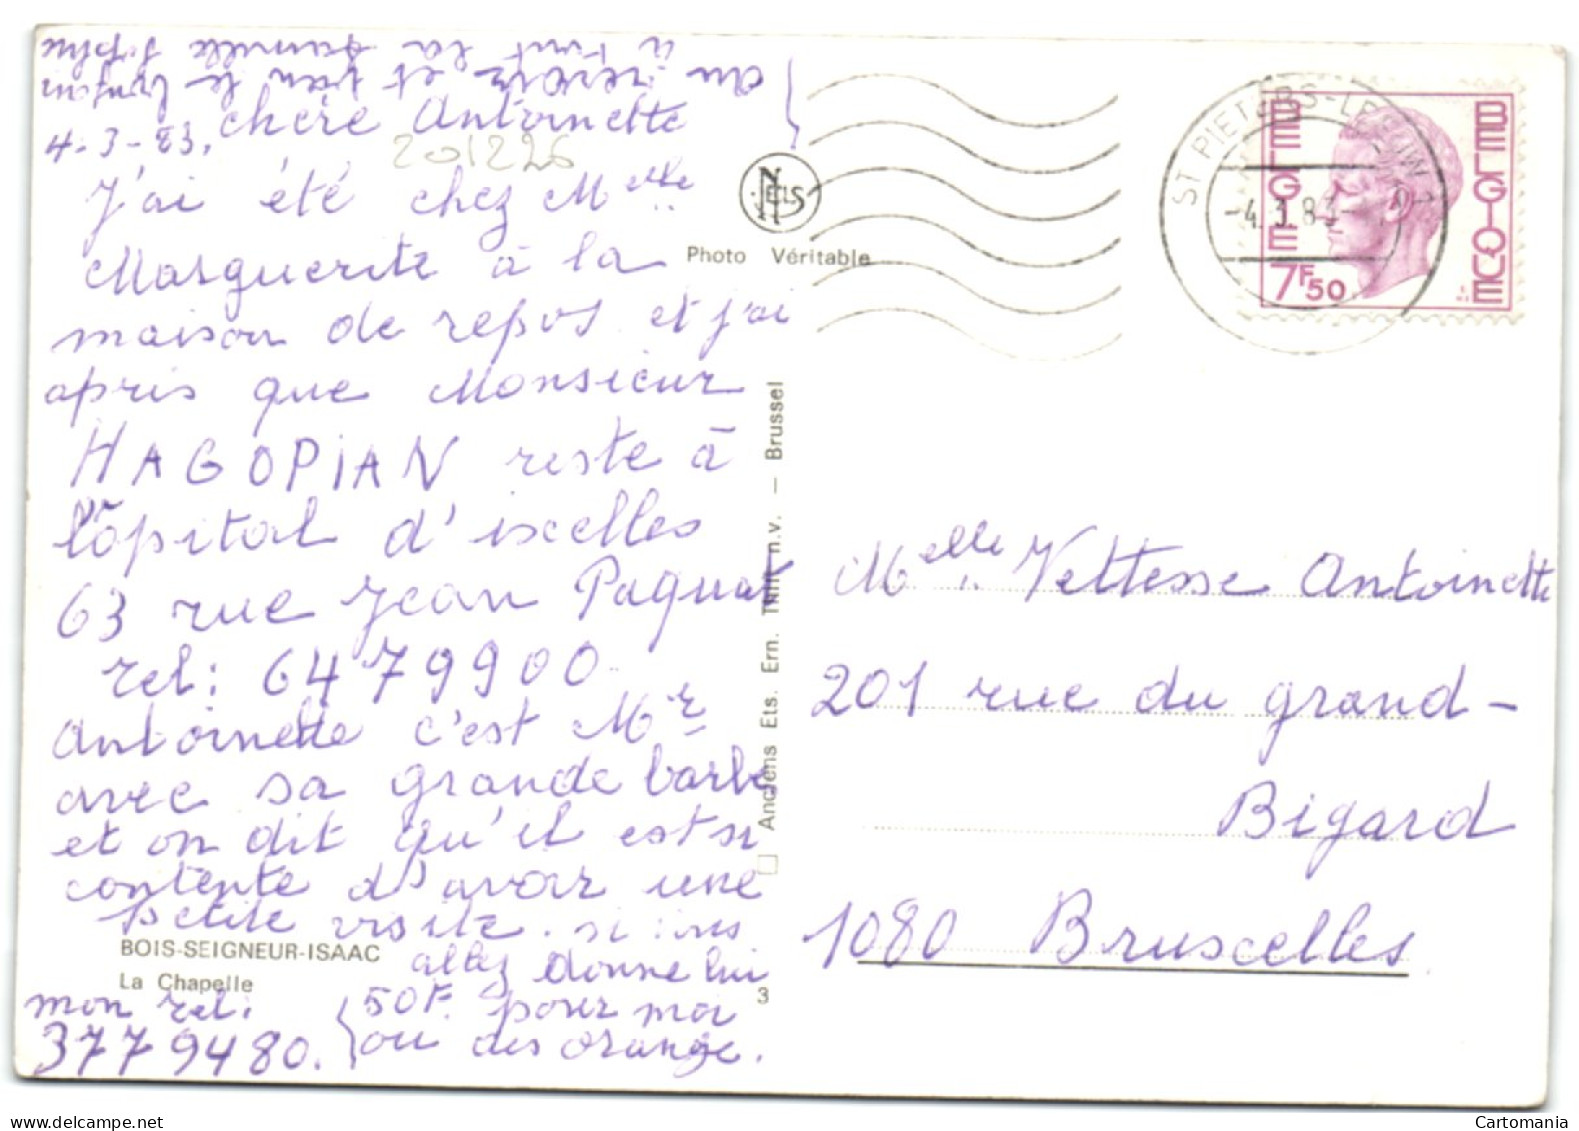 4-3-83, chère Antoinette
201226
J'ai été chez Melle
Marguerite à la
maison de repos et j'ai
apris que Monsieur
HAGOPIAN reste à
l'opital d'ixelles
63 rue Jean Paquot
tel: 6479900
Antoinette c'est Mr
avec sa grande barbe
et on dit qu'il est si
contente d'avoir une
petite visite. si vous
allez donne lui
50F. pour moi
ou des orange.
mon tel:
3779480.
au revoir et bien le bonjour
à tout la famille Sophie
BOIS-SEIGNEUR-ISAAC
La Chapelle
NELS
Photo Véritable
Anciens Ets. Ern. Thill n.v. — Brussel
3
ST PIETERS-LEEUW 1
-4.3.83-
BELGIE
BELGIQUE
7F50
Melle Vettesse Antoinette
201 rue du grand-
Bigard
1080 Bruxcelles
delcampe.net
Cartomania